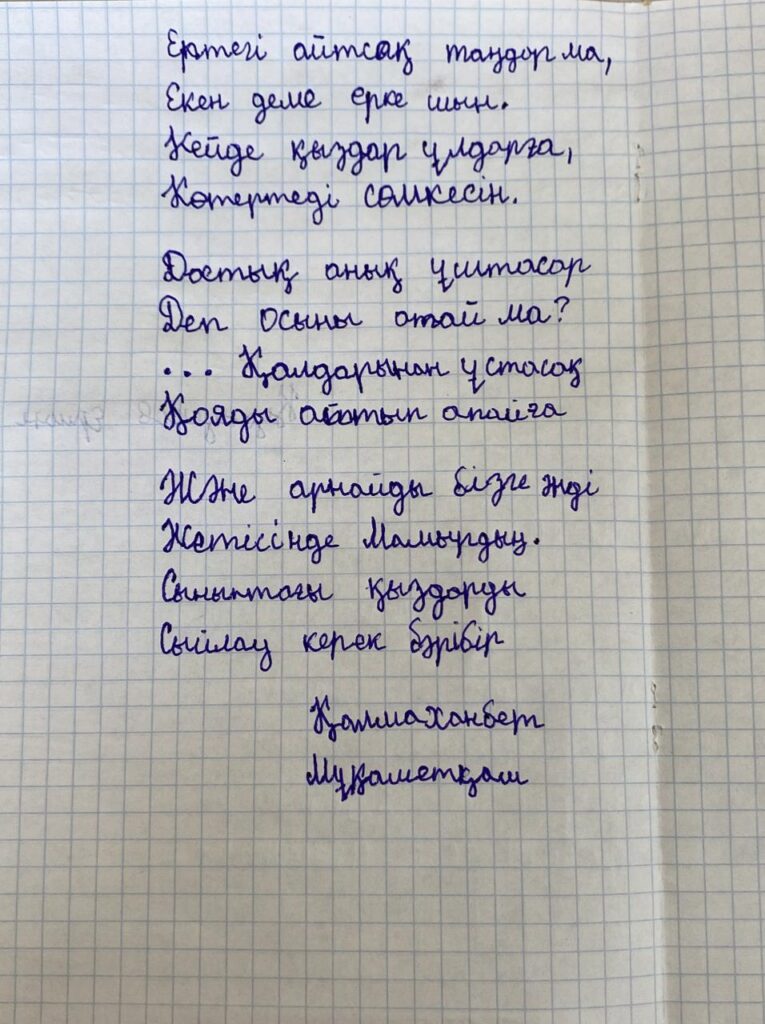 Ертегі айтсақ таңдар ма,
Екен деме ерке шын.
Кейде қыздар ұлдарға,
Көтертеді сөмкесін.
Достық анық ұштасар
Деп осыны атай ма?
... Қолдарынан ұстасақ
Қояды айтып апайға
Және арнайды бізге әнді
Жетісінде Мамырдың.
Сыныптағы қыздарды
Сыйлау керек бәрібір
Қалмаханбет
Мұқаметқали